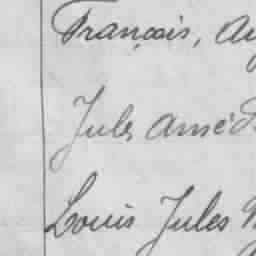 François, Au
Jules Améd
Louis Jules